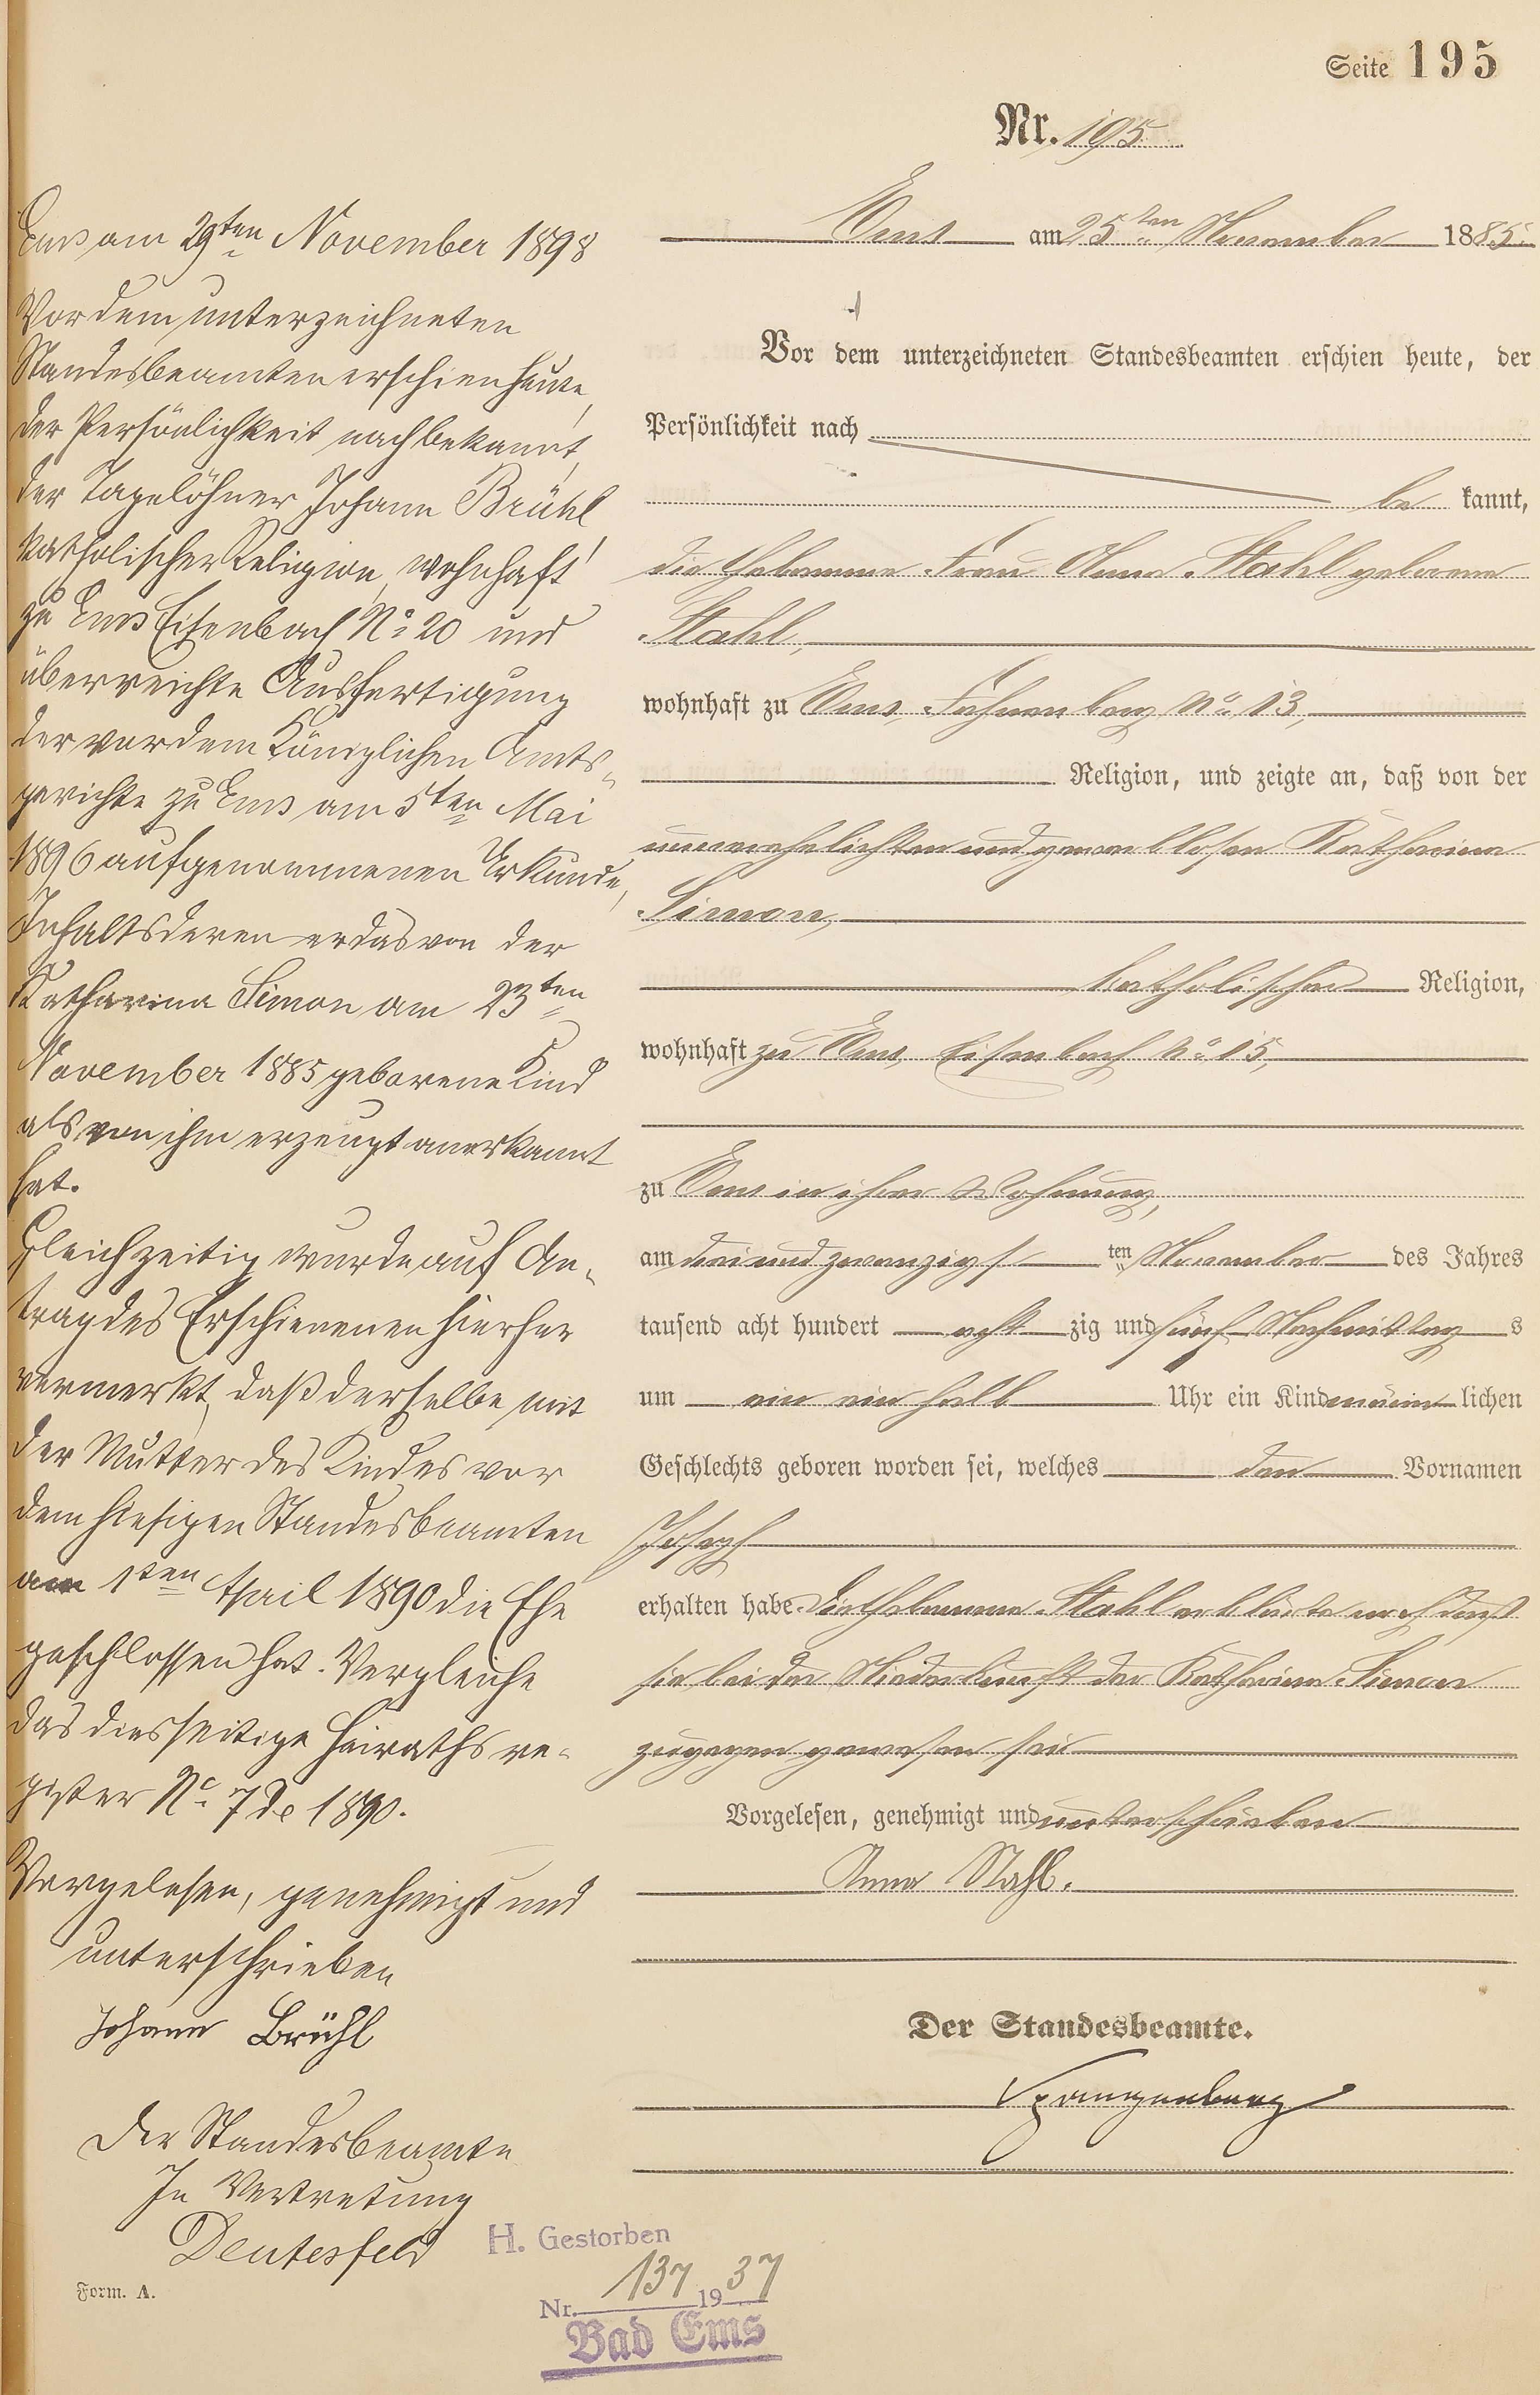 Seite 195
Nr. 195
Ems am 25ten November 1885.
Vor dem unterzeichneten Standesbeamten erschien heute, der
Persönlichkeit nach
be kannt,
die Hebamme Frau Anna Stahl geborene
Stahl,
wohnhaft zu Ems, Fahnenberg No 13,
Religion, und zeigte an, daß von der
unverehelichten und gewerblosen Katharina
Simon,
katholischer Religion,
wohnhaft zu Ems, Eisenbach No 15,
zu Ems in ihrer Wohnung,
am dreiundzwanzigsten November des Jahres
tausend acht hundert acht zig und fünf Nachmittag s
um ein ein halb Uhr ein Kind männ lichen
Geschlechts geboren worden sei, welches den Vornamen
Joseph
erhalten habe. Die Hebamme Stahl erklärte noch daß
sie bei der Niederkunft der Katharina Simon
zugegen gewesen sei
Vorgelesen, genehmigt und unterschrieben
Anna Stahl.
Der Standesbeamte.
Spangenberg
Ems am 29ten November 1898
Vor dem unterzeichneten
Standesbeamten erschien heute,
der Persönlichkeit nach bekannt,
der Tagelöhner Johann Brühl
katholischer Religion, wohnhaft
zu Ems Eisenbach No 20 und
überreichte Ausfertigung
der vor dem Königlichen Amts-
gerichte zu Ems am 5ten Mai
1896 aufgenommenen Urkunde,
Inhalts deren er das von der
Katharina Simon am 23ten
November 1885 geborene Kind
als von ihm erzeugt anerkannt
hat.
Gleichzeitig wurde auf An-
trag des Erschienenen hierher
vermerkt, daß derselbe mit
der Mutter des Kindes vor
dem hiesigen Standesbeamten
am 1ten April 1890 die Ehe
geschlossen hat. Vergleiche
das diesseitige Heirathsre-
gister No 7 de 1890.
Vorgelesen, genehmigt und
unterschrieben
Johann Brühl
Der Standesbeamte
In Vertretung
Deutesfeld
Form. A.
H. Gestorben
Nr. 137 1937
Bad Ems